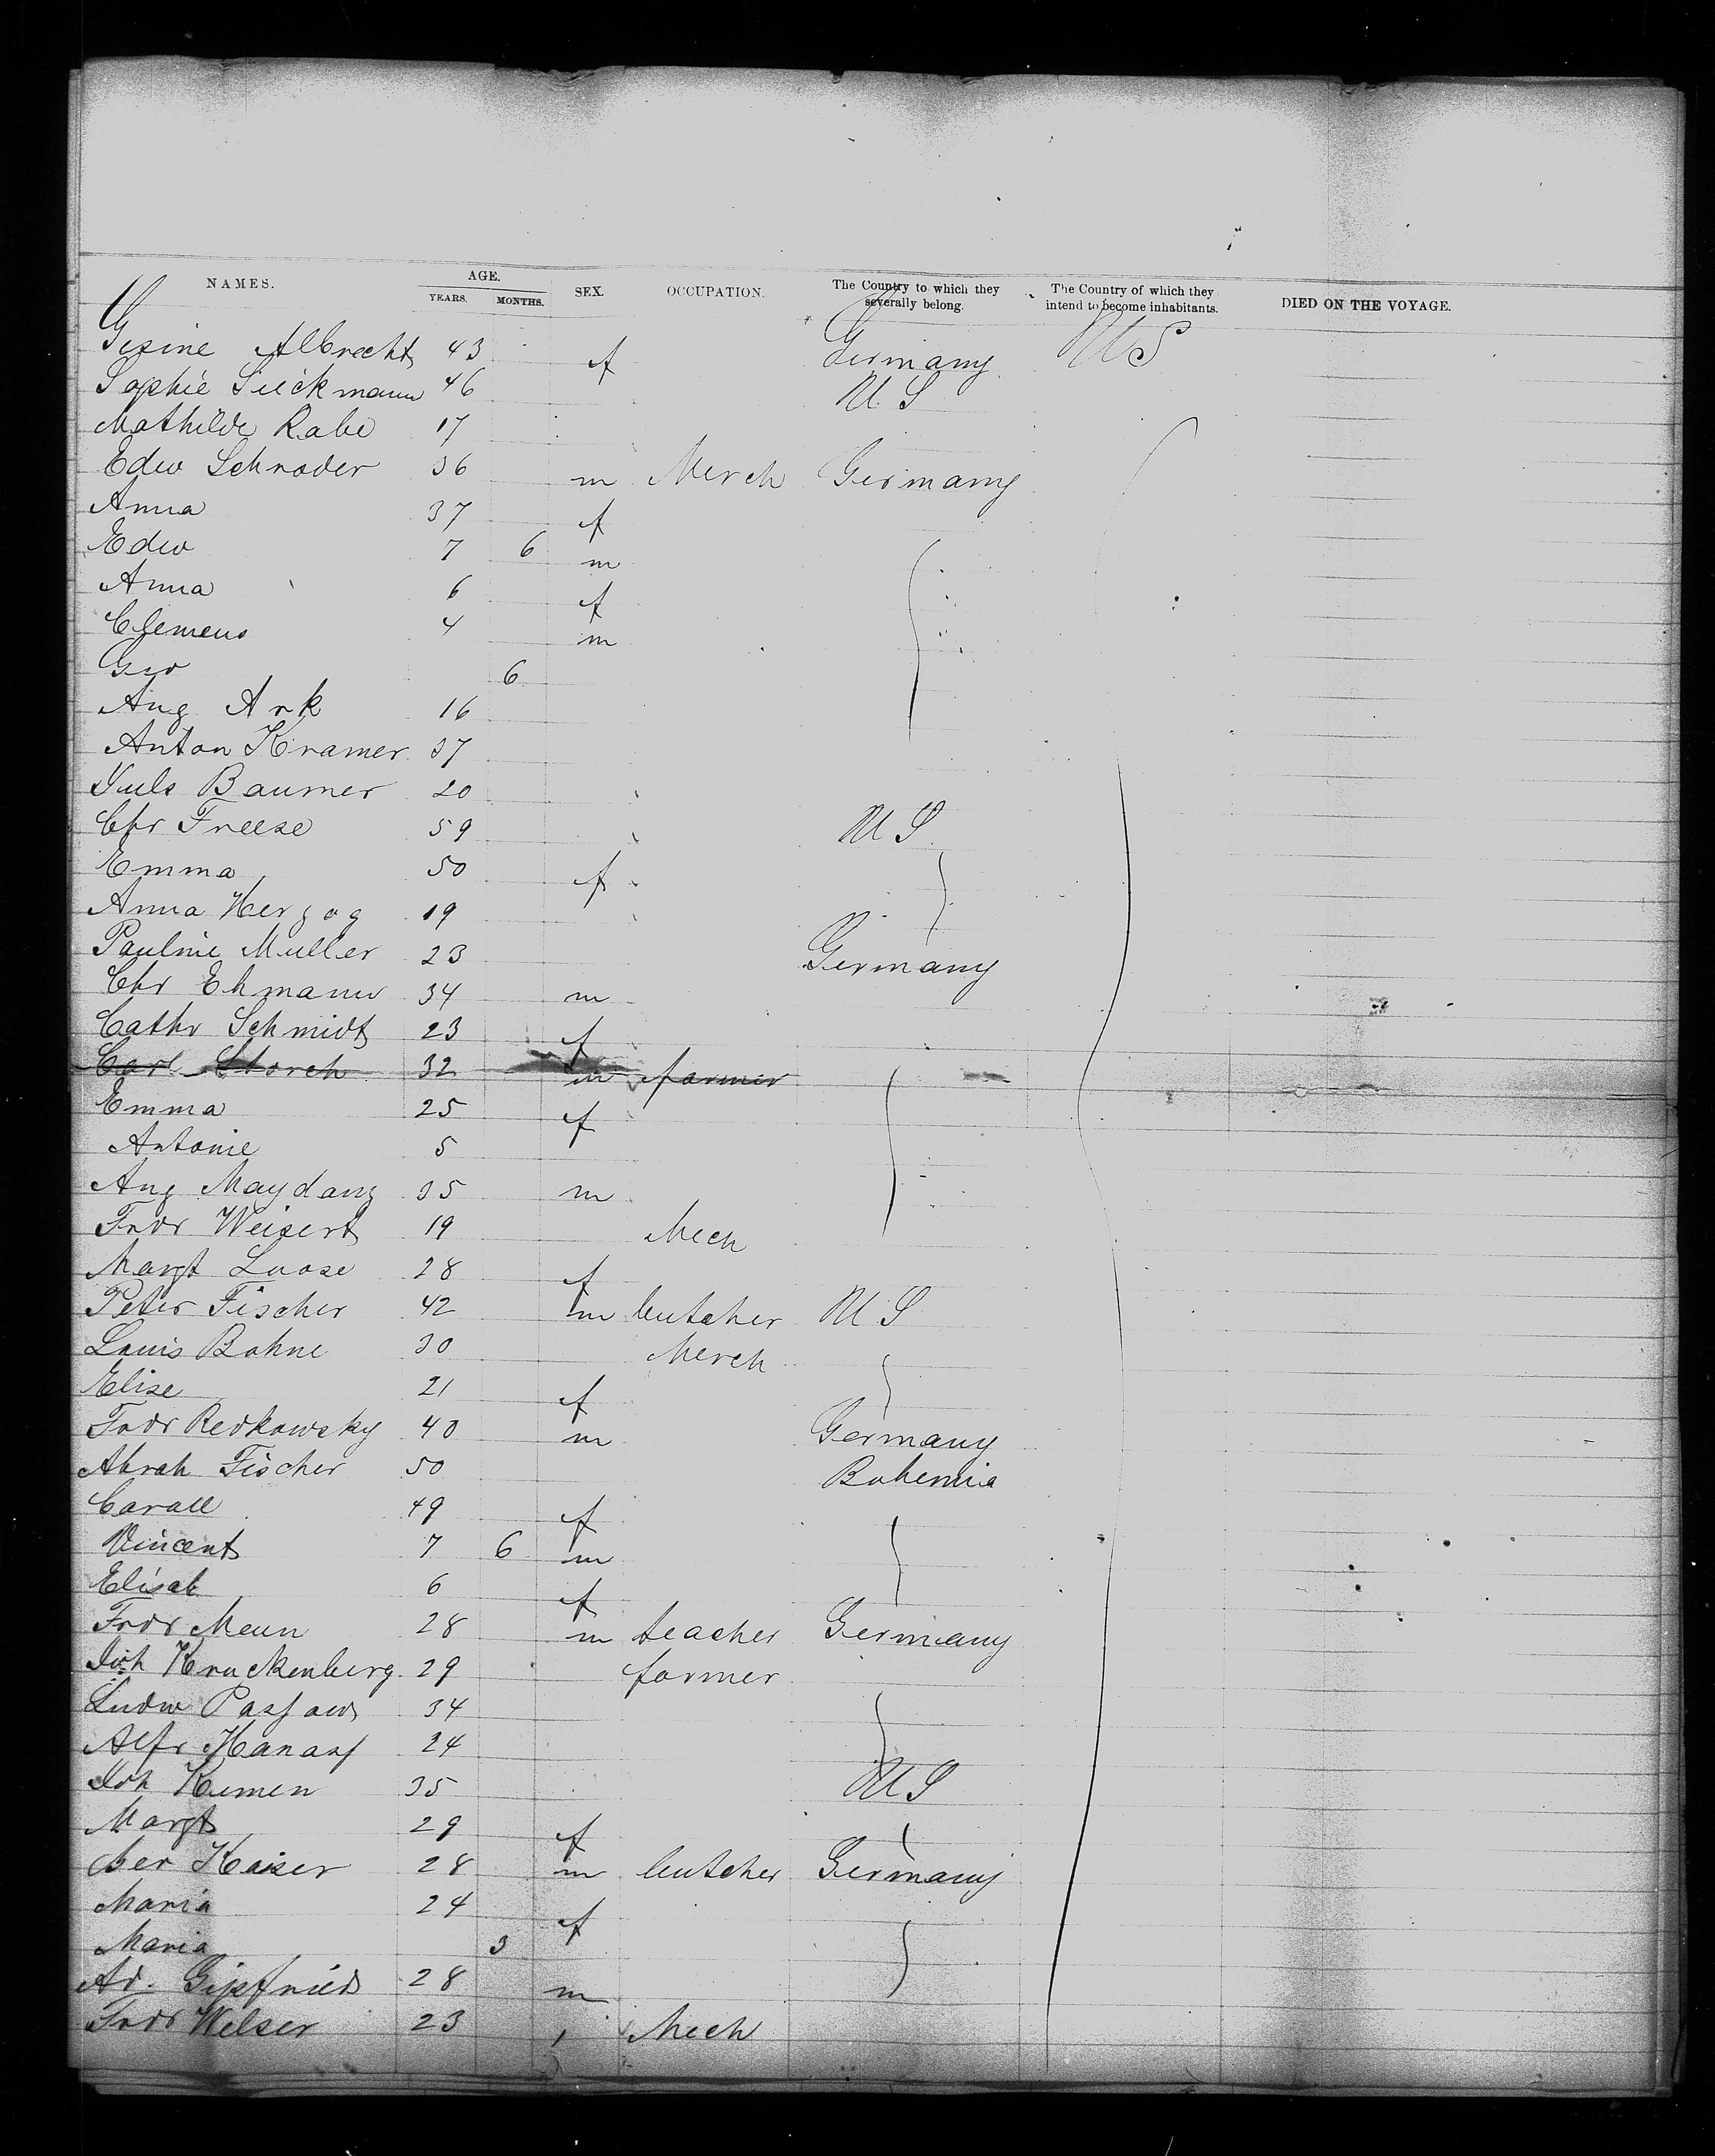 NAMES. AGE. YEARS. MONTHS. SEX. OCCUPATION. The Country to which they severally belong. The Country of which they intend to become inhabitants. DIED ON THE VOYAGE.
Gesine Albrecht 43 f Germany U S
Sophie Lückmann 46 U S
Mathilde Rabe 17
Edw Schroder 36 m Merch Germany
Anna 37 f
Edw 7 6 m
Anna 6 f
Clemens 4 m
Geo 6
Aug Ark 16
Anton Kramer 37
Juls Baumer 20
Chr Freese 59 U S
Emma 50 f
Anna Herzog 19
Pauline Muller 23 Germany
Chr Ehmann 34 m
Cathr Schmidt 23 f
Carl Storch 32 m farmer
Emma 25 f
Antonie 5
Aug Maydang 35 m
Fredr Weisert 19 Mech
Margt Loose 28 f
Peter Fischer 42 m butcher U S
Louis Bohne 30 Merch
Elise 21 f
Fredr Redkowsky 40 m Germany
Abrah Fischer 50 Bohemia
Caroll 49 f
Vincent 7 6 m
Elisab 6 f
Fredr Meun 28 m teacher Germany
Joh Kruckenberg 29 farmer
Ludw Passow 34
Alfr Hanass 24
Joh Kumen 35 U S
Margt 29 f
Kaiser 28 m butcher Germany
Maria 24 f
Maria 3
Ad. Gipfried 28 m
Fredr Welser 23 Mech